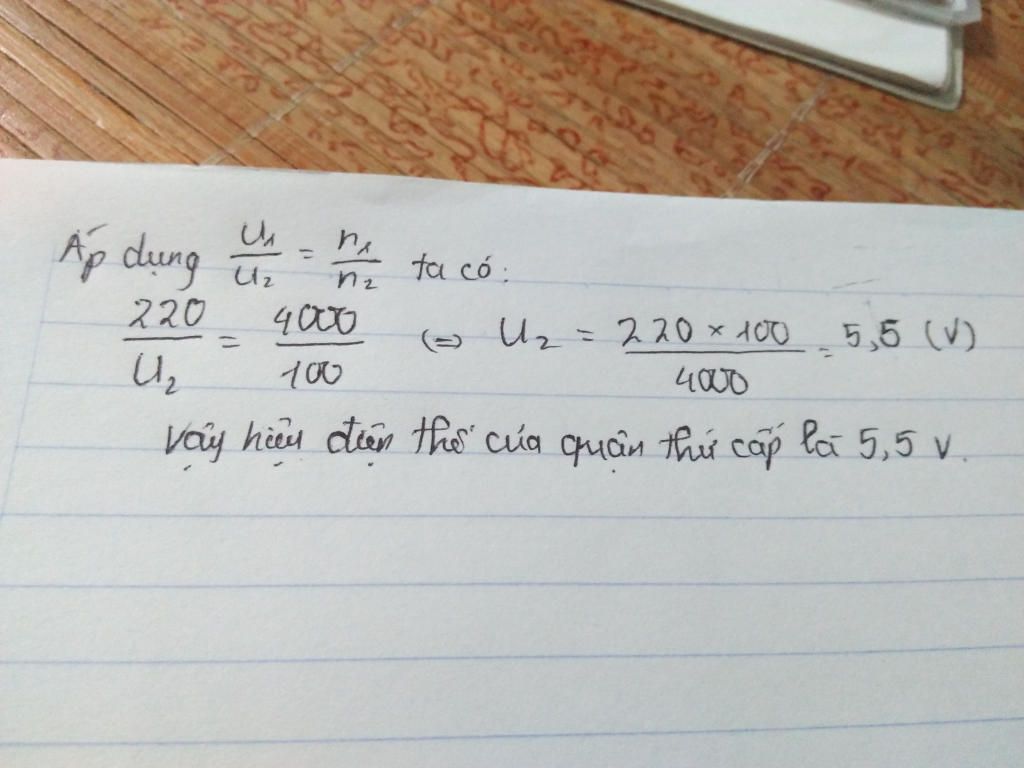 Áp dụng U1/U2 = n1/n2 ta có:
220/U2 = 4000/100 (=) U2 = 220 × 100/4000 = 5,5 (V)
Vậy hiệu điện thế của quận thứ cấp là 5,5 V.